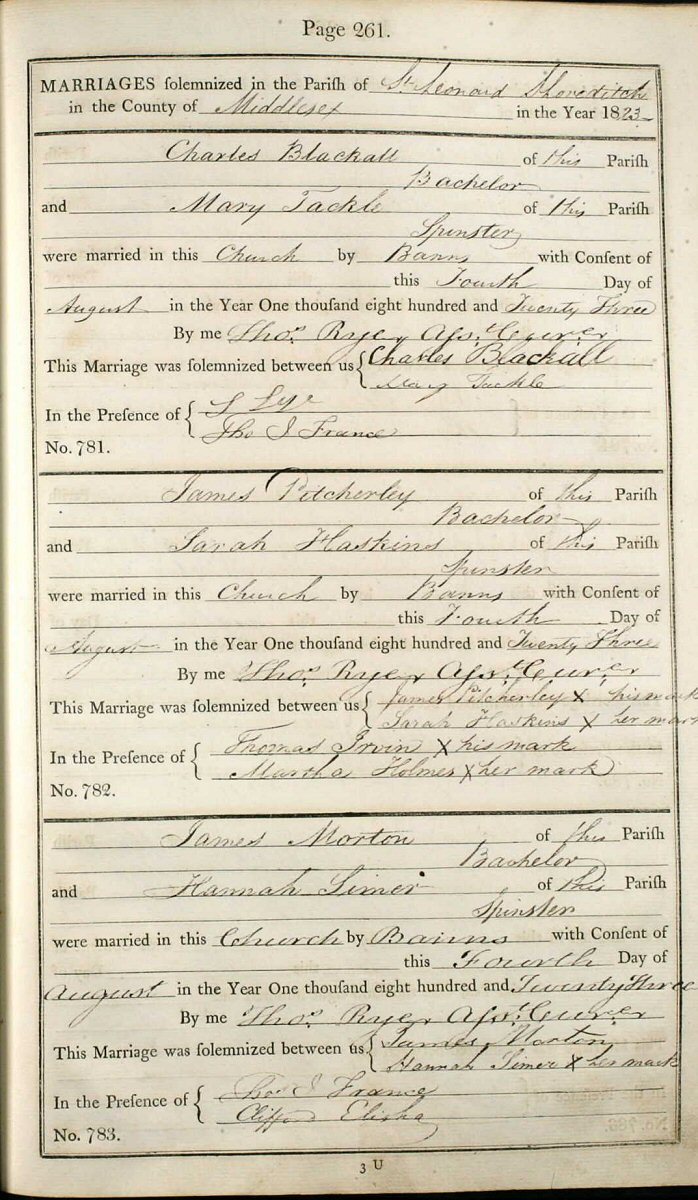 Page 261.
MARRIAGES solemnized in the Parish of St Leonard Shoreditch
in the County of Middlesex in the Year 1823
Charles Blackall of this Parish
Bachelor
and Mary Tackle of this Parish
Spinster
were married in this Church by Banns with Consent of
this Fourth Day of
August in the Year One thousand eight hundred and Twenty Three
By me Thos. Ryer Asst. Curer
This Marriage was solemnized between us { Charles Blackall
Mary Tackle
In the Presence of {
Tho J France
No. 781.
James Pitcherley of this Parish
Bachelor
and Sarah Haskins of this Parish
Spinster
were married in this Church by Banns with Consent of
this Fourth Day of
August in the Year One thousand eight hundred and Twenty Three
By me Thos. Ryer Asst. Curer
This Marriage was solemnized between us { James Pitcherley X his mark
Sarah Haskins X her mark
In the Presence of { Thomas Irvin X his mark
Martha Holmes X her mark
No. 782.
James Morton of this Parish
Bachelor
and Hannah Simer of this Parish
Spinster
were married in this Church by Banns with Consent of
this Fourth Day of
August in the Year One thousand eight hundred and Twenty Three
By me Thos. Ryer Asst. Curer
This Marriage was solemnized between us { James Morton
Hannah Simer X her mark
In the Presence of { Tho J France
Clifford Elisha
No. 783.
3 U